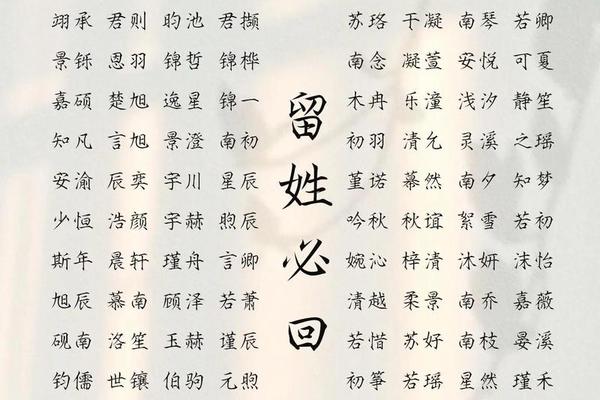 翊承 君则 昀池 君撷
景铄 恩羽 锦哲 锦桦
嘉硕 楚旭 逸星 锦一
知凡 言旭 景澄 南初
安渝 辰奕 宇川 星辰
少恒 浩颜 宇赫 煦辰
斯年 晨轩 瑾舟 言卿
旭辰 慕南 顾泽 若萧
砚南 洛笙 玉赫 谨辰
钧儒 世镶 伯驹 元煦
留姓必回
苏珞 干凝 南琴 若卿
南念 凝萱 安悦 可夏
木冉 乐潼 浅汐 静笙
初羽 清允 灵溪 之瑶
堇诺 幕然 南夕 知梦
吟秋 秋谊 絮雪 若初
婉沁 梓清 沐妍 沫怡
清越 柔景 南乔 嘉薇
若惜 苏好 南枝 晏溪
初筝 若瑶 星然 瑾禾